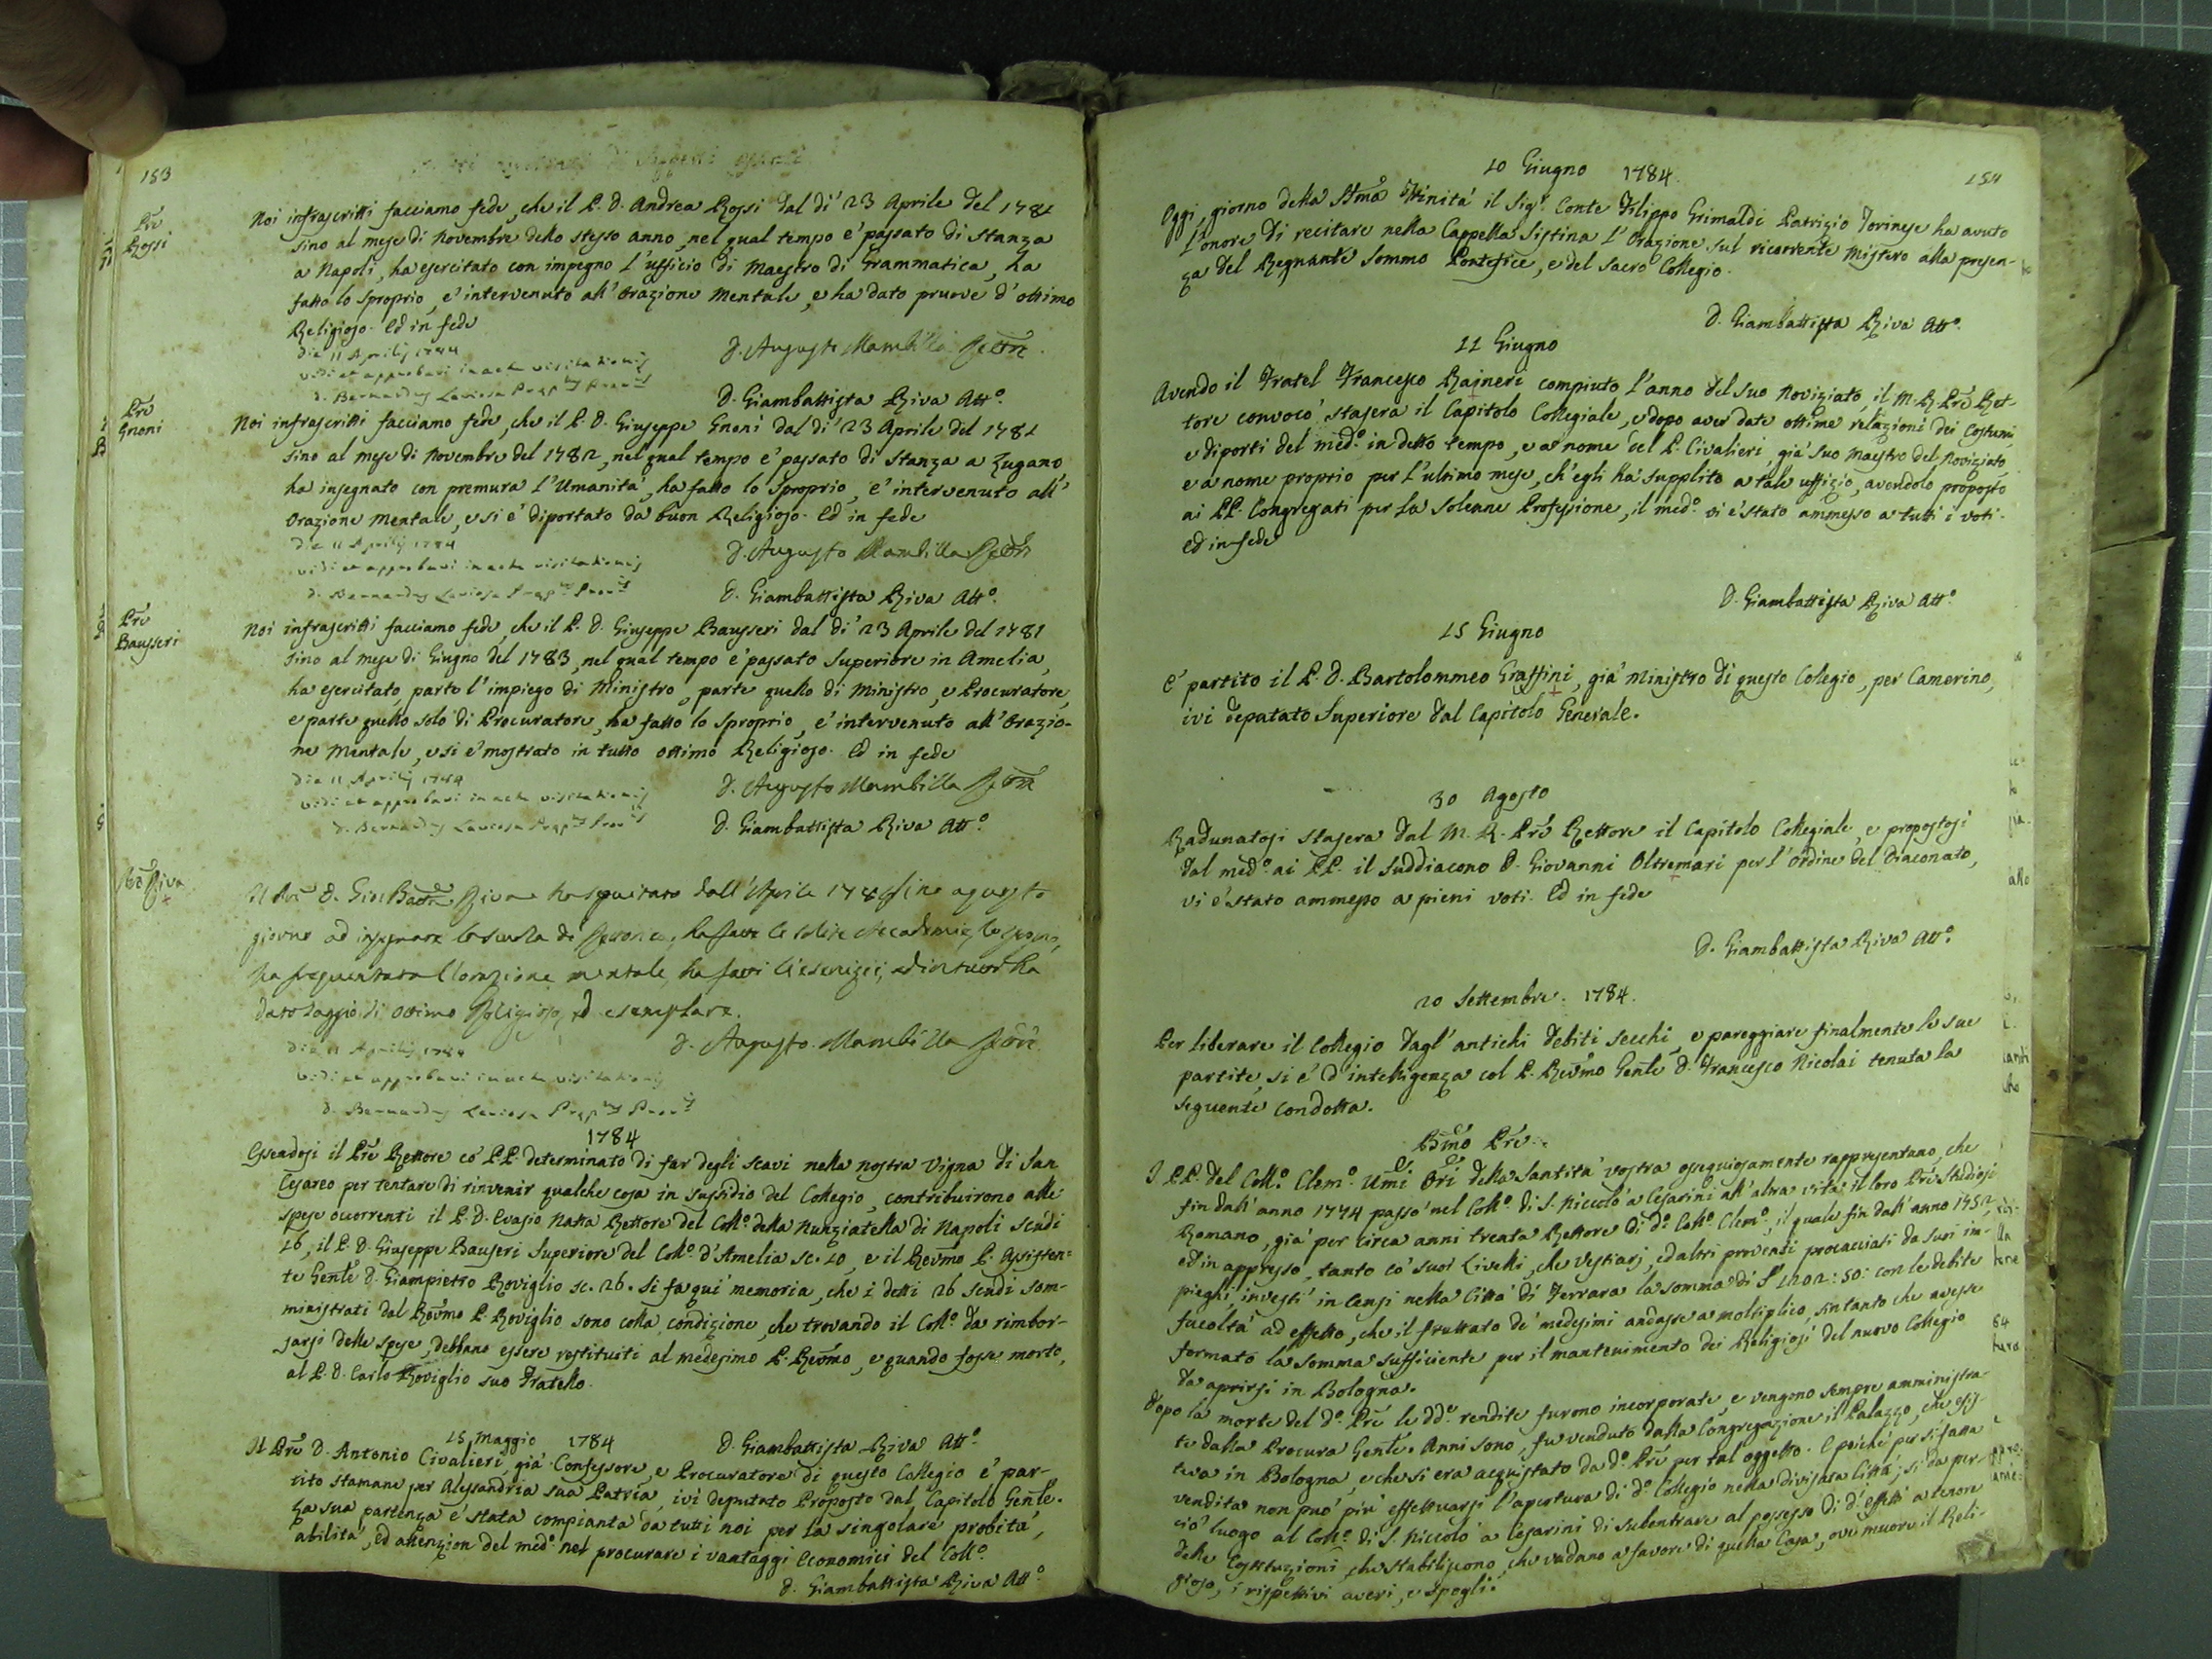 153
Pre
Rossi
Noi infrascritti facciamo fede, che il P. D. Andrea Rossi dal dì 23 Aprile del 1781
sino al mese di Novembre dello stesso anno, nel qual tempo è passato di stanza
a Napoli, ha esercitato con impegno l'ufficio di Maestro di Grammatica, ha
fatto lo sproprio, è intervenuto all'Orazione Mentale, e ha dato pruove d'ottimo
Religioso. Ed in fede
die 11 Aprilis 1784
vidi et approbavi in actu visitationis
D. Augusto Mambilla Rettore
D. Bernardus Laviosa Preptus Provlis
D. Giambattista Riva Atto.
Pre
Gnoni
Noi infrascritti facciamo fede, che il P. D. Giuseppe Gnoni dal dì 23 Aprile del 1781
sino al mese di Novembre del 1782, nel qual tempo è passato di stanza a Lugano,
ha insegnato con premura l'Umanità, ha fatto lo sproprio, è intervenuto all'
Orazione Mentale, e si è diportato da buon Religioso. Ed in fede
die 11 Aprilis 1784
vidi et approbavi in actu visitationis
D. Augusto Mambilla Rettore
D. Bernardus Laviosa Preptus Provlis
D. Giambattista Riva Atto.
Pre
Bausseri
Noi infrascritti facciamo fede, che il P. D. Giuseppe Bausseri dal dì 23 Aprile del 1781
sino al mese di Giugno del 1783, nel qual tempo è passato Superiore in Amelia,
ha esercitato parte l'impiego di Ministro, parte quello di Ministro, e Procuratore,
e parte quello solo di Procuratore, ha fatto lo sproprio, è intervenuto all'Orazio-
ne Mentale, e si è mostrato in tutto ottimo Religioso. Ed in fede
die 11 Aprilis 1784
vidi et approbavi in actu visitationis
D. Augusto Mambilla Rettore
D. Bernardus Laviosa Preptus Provlis
D. Giambattista Riva Atto.
Riva
Il D. Gio: Riva ha seguitato dall'Aprile fino a questo
giorno ad insegnare la scuola di Rettorica, ha fatte le solite Accademie, lo
ha frequentata l'orazione mentale, ha fatti li esercizii, ed in tutto ha
dato saggio di ottimo Religioso, ed esemplare.
die 11 Aprilis 1784
D. Augusto Mambilla Rettore
vidi et approbavi in actu visitationis
D. Bernardus Laviosa Preptus Provlis
1784
Essendosi il Pre Rettore co' PP. determinato di far degli scavi nella nostra Vigna di San
Cesareo per tentare di rinvenir qualche cosa in sussidio del Collegio, contribuirono alle
spese occorrenti il P. D. Evasio Natta Rettore del Collo. della Nunziatella di Napoli scudi
16, il P. D. Giuseppe Bauseri Superiore del Collo. d'Amelia sc. 10, e il Revmo P. Assisten=
te Genle D. Giampietro Roviglio sc. 26. Si fa qui memoria, che i detti 26 scudi som-
ministrati dal Revmo P. Roviglio sono colla condizione, che trovando il Collo. da rimbor-
sarsi delle spese, debbano essere restituiti al medesimo P. Revmo, e quando fosse morto,
al P. D. Carlo Roviglio suo Fratello.
D. Giambattista Riva Atto.
15 Maggio 1784
Il Pre D. Antonio Civalieri già Confessore, e Procuratore di questo Collegio è par-
tito stamane per Alessandria sua Patria, ivi deputato Proposto dal Capitolo Genle.
La sua partenza è stata compianta da tutti noi per la singolare probità,
abilità, ed attenzion del medo. nel procurare i vantaggi Economici del Collo.
D. Giambattista Riva Atto.
154
10 Giugno 1784.
Oggi, giorno della SSma Trinità il Sigr. Conte Filippo Grimaldi Patrizio Torinese ha avuto
l'onore di recitare nella Cappella Sistina l'Orazione sul ricorrente Mistero alla presen-
za del Regnante Sommo Pontefice, e del Sacro Collegio.
D. Giambattista Riva Atto.
11 Giugno
Avendo il Fratel Francesco Rajneri compiuto l'anno del suo Noviziato, il M. R. Pre Ret-
tore convocò stasera il Capitolo Collegiale, e dopo aver date ottime relazioni dei costumi
e diporti del medo. in detto tempo, e a nome del P. Civalieri, già suo Maestro del Noviziato
e a nome proprio per l'ultimo mese, ch'egli ha supplito a tale uffizio, avendolo proposto
ai PP. Congregati per la solenne Professione, il medo. vi è stato ammesso a tutti i voti.
Ed in fede
D. Giambattista Riva Atto.
15 Giugno
È partito il P. D. Bartolommeo Graffini, già Ministro di questo Collegio, per Camerino,
ivi deputato Superiore dal Capitolo Generale.
30 Agosto
Radunatosi stasera dal M. R. Pre Rettore il Capitolo Collegiale, e propostosi
dal medo. ai PP. il Suddiacono D. Giovanni Oltremari per l'Ordine del Diaconato,
vi è stato ammesso a pieni voti. Ed in fede
D. Giambattista Riva Atto.
20 Settembre. 1784.
Per liberare il Collegio dagl'antichi debiti secchi, e pareggiare finalmente le sue
partite, si è d'intelligenza col P. Revmo Genle D. Francesco Nicolai tenuta la
seguente condotta.
Bmo Pre:
I PP. del Collo. Clemo. Umi Ori della Santità vostra ossequiosamente rappresentano, che
fin dall'anno 1774 passò nel Collo. di S. Niccolò a Cesarini all'altra vita il loro Pre Studiosi
Romano, già per circa anni trenta Rettore di do. Collo. Clemo., il quale fin dall'anno 1752,
ed in appresso, tanto co' suoi Livelli, che Vestiarj, ed altri proventi procacciati da suoi im-
pieghi, investì in Censi nella Città di Ferrara la somma di 1202: 50: con le debite
facoltà ad effetto, che il fruttato de' medesimi andasse a moltiplico, sintanto che avesse
formato la somma sufficiente per il mantenimento dei Religiosi del nuovo Collegio
da aprirsi in Bologna.
Dopo la morte del do. Pre le dde. rendite furono incorporate, e vengono sempre amministra-
te dalla Procura Genle. Anni sono, fu venduto dalla Congregazione il Palazzo, che esis-
teva in Bologna, e che si era acquistato da do. Pre per tal oggetto. E poiché per sì fatta
vendita non può più effettuarsi l'apertura di do. Collegio nella divisata Città; si da per-
ciò luogo al Collo. di S. Niccolò a Cesarini di subentrare al possesso di di. effetti a tenore
delle Costituzioni, che stabiliscono, che vadano a favore di quella Casa, ove muore il Reli-
gioso, i rispettivi averi, e spogli.